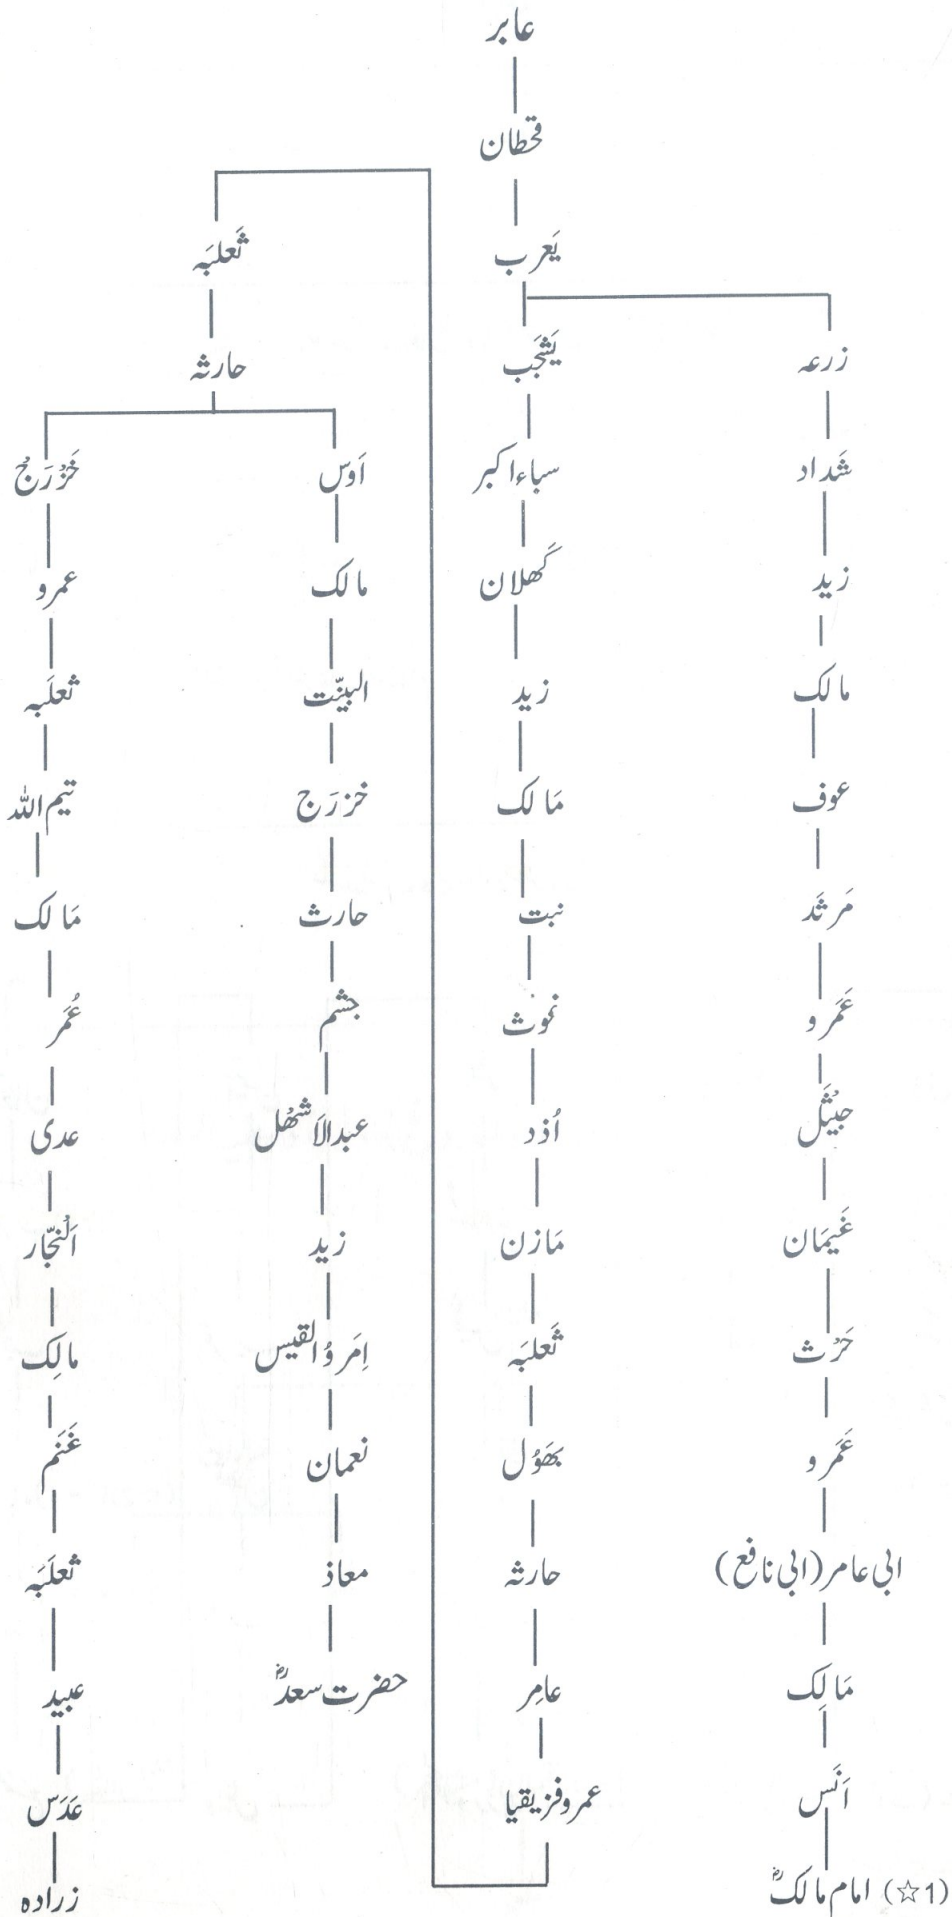 عابر
قحطان
یَعرب
زرعہ
شداد
زید
مالک
عوف
مَرثَد
عَمَرو
جَیثَل
غَیمَان
حَرْث
عَمَرو
ابی عامر (ابی نافع)
مَالِک
اَنَس
(1☆) امام مالکؒ
یَشجَب
سباء اکبر
کَھلان
زید
مَالک
نبت
غوث
اُذد
مَازن
ثَعلبَہ
بھَوُل
حارثہ
عامِر
عمرو فزیقیا
ثَعلبَہ
حارثہ
اَوس
مالک
البیّنت
خزرَج
حارث
جشم
عبدالاَشھَل
زید
اِمَروُالقیس
نعمان
معاذ
حضرت سعدؓ
خَزْرَجْ
عمرو
ثعلَبہ
تیم اللہ
مَالک
عُمَر
عدی
اَلنّجَار
مالِک
غَنَم
ثعلَبَہ
عبید
عَدَس
زرادہ